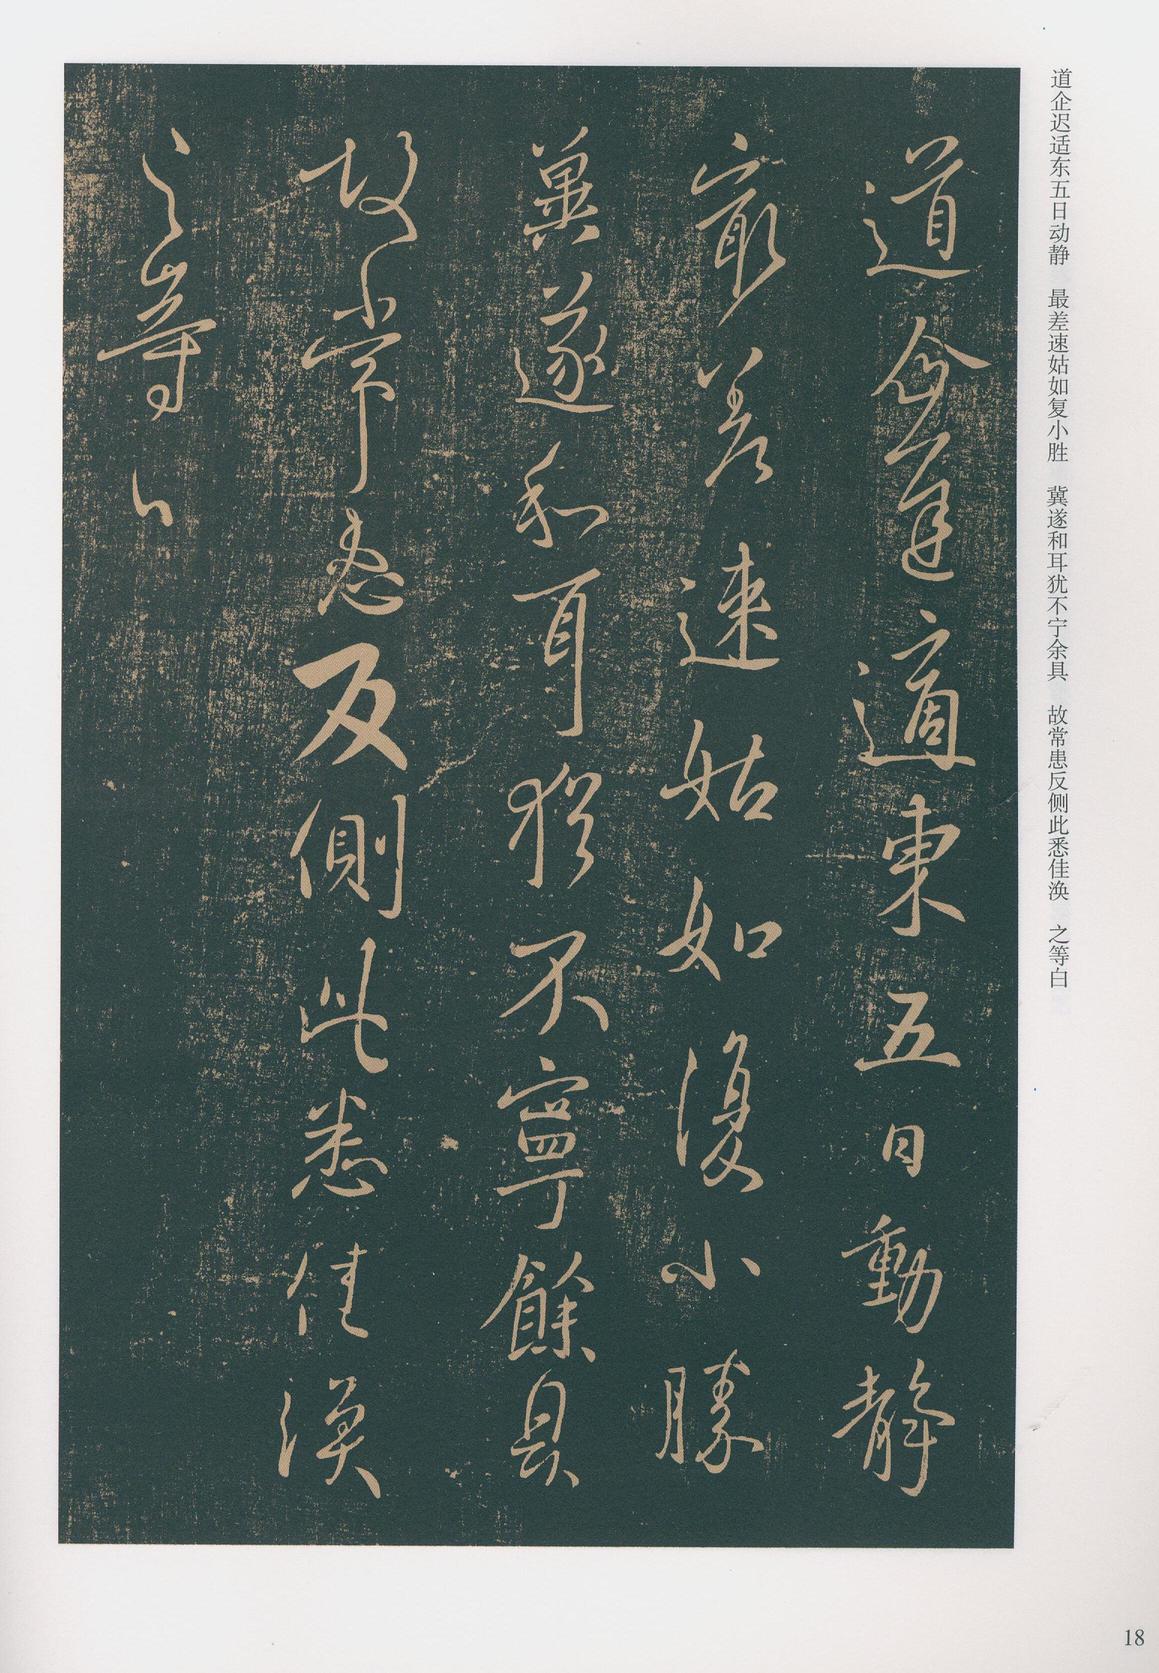 道企迟适东五日动静 最差速姑如复小胜 冀遂和耳犹不宁余具 故常患反侧此悉佳涣 之等白
道企遲適東五日動靜
寂差速姑如復小勝
冀遂和耳猶不寧餘具
故常患反側此悉佳渙
之等白
18